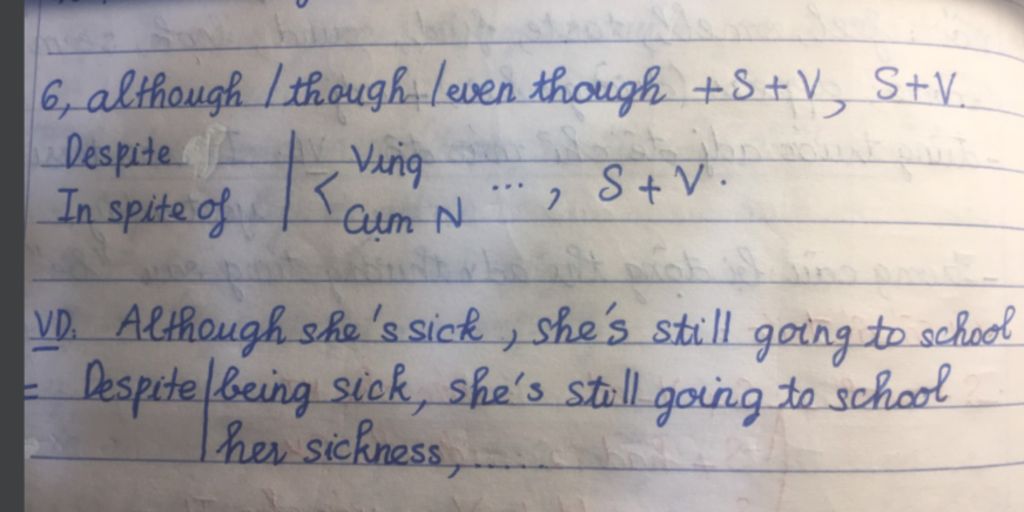 6, although / though / even though + S + V, S + V.
Despite
In spite of | < Ving
Cụm N ... , S + V.
VD: Although she's sick, she's still going to school
= Despite | being sick, she's still going to school
her sickness, ......